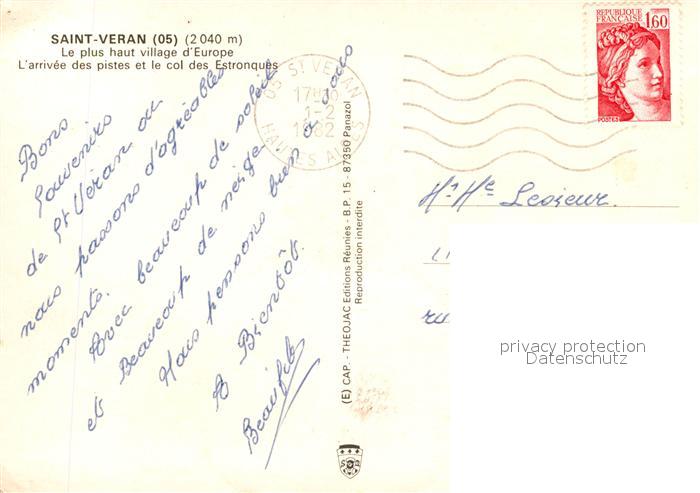 SAINT-VERAN (05) (2 040 m)
Le plus haut village d'Europe
L'arrivée des pistes et le col des Estronques
Bons
Souvenirs
de St Véran ou
nous passons d'agréables
moments.
Avec beaucoup de soleil
et Beaucoup de neige
Nous pensons bien a vous
A Bientôt.
Beaufils
(E) CAP. - THEOJAC Editions Réunies - B.P. 15 - 87350 Panazol
Reproduction interdite
05 ST VERAN
17H30
1-2
1982
HAUTES ALPES
REPUBLIQUE
FRANÇAISE
1,60
POSTES
Mr Me Lesieur.
privacy protection
Datenschutz